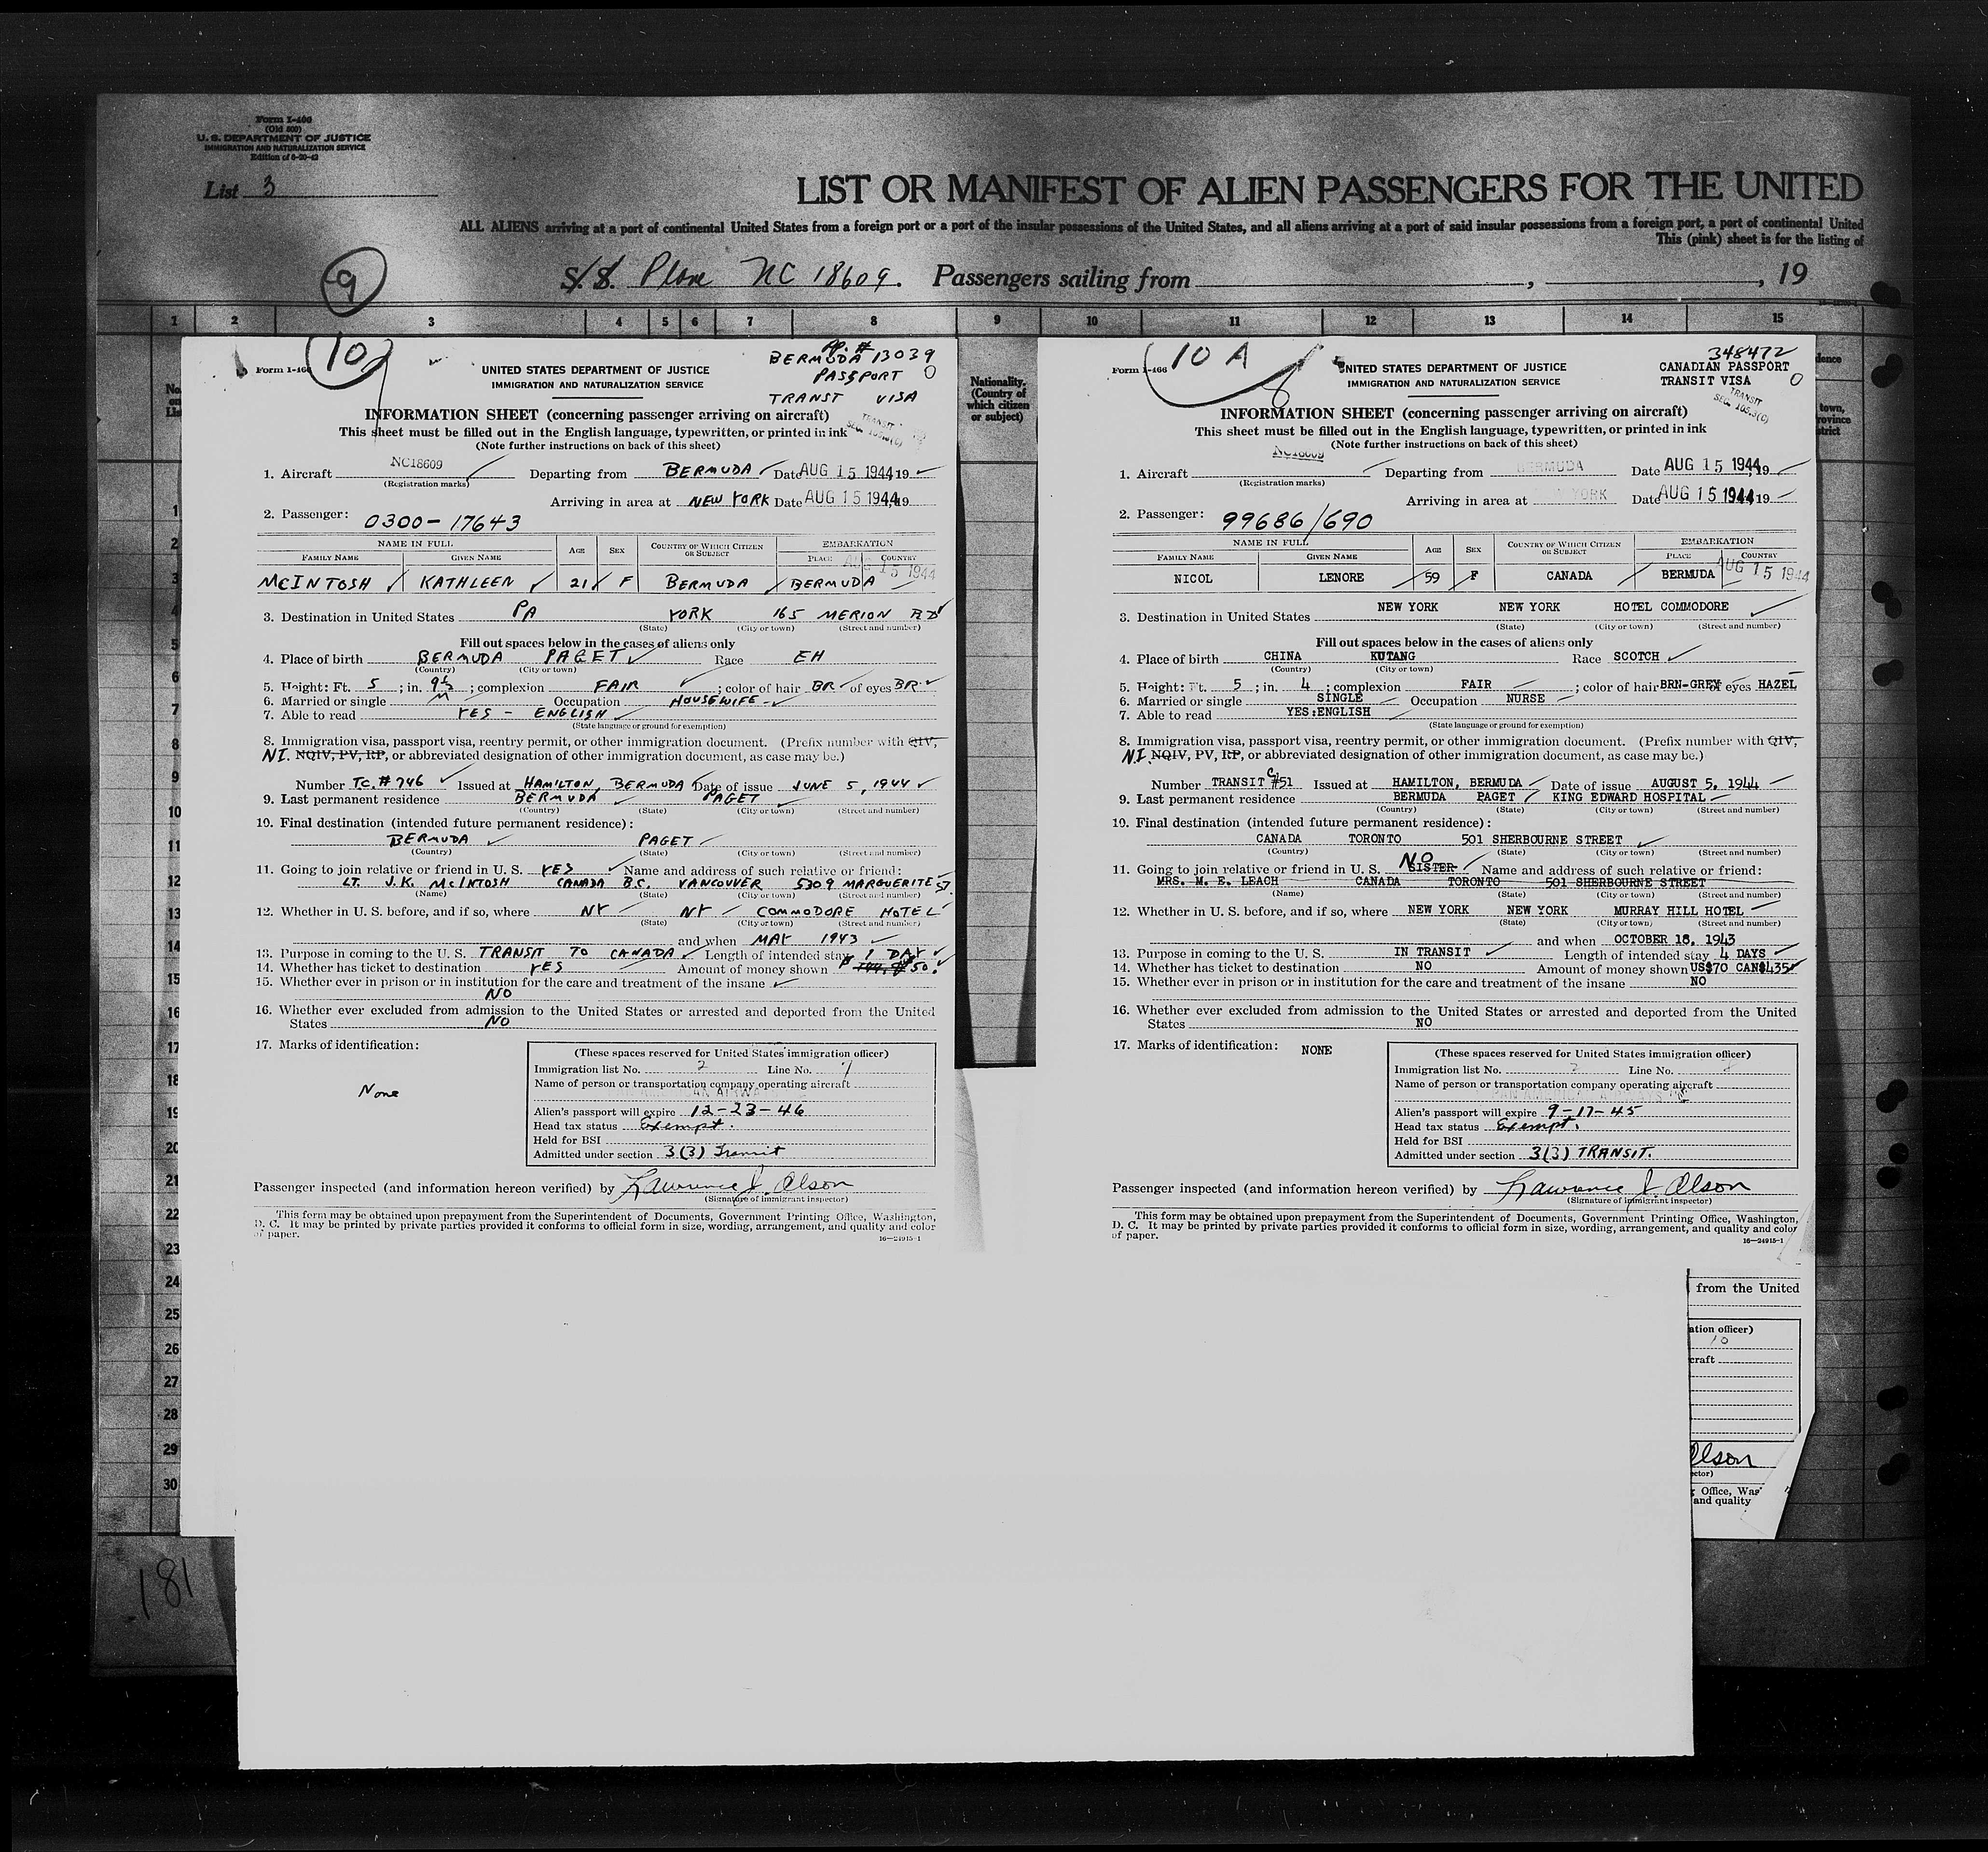 Form I-466
(Old 500)
U. S. DEPARTMENT OF JUSTICE
IMMIGRATION AND NATURALIZATION SERVICE
List 3
LIST OR MANIFEST OF ALIEN PASSENGERS FOR THE UNITED
ALL ALIENS arriving at a port of continental United States from a foreign port or a port of the insular possessions of the United States, and all aliens arriving at a port of said insular possessions from a foreign port, a port of continental United
This (pink) sheet is for the listing of
9
S.S. Plane NC 18609. Passengers sailing from , , 19
1 2 3 4 5 6 7 8 9 10 11 12 13 14 15
Nationality.
(Country of
which citizen
or subject)
10
Form I-466
PP. #
BERMUDA 13039
PASSPORT O
TRANST VISA
UNITED STATES DEPARTMENT OF JUSTICE
IMMIGRATION AND NATURALIZATION SERVICE
INFORMATION SHEET (concerning passenger arriving on aircraft)
This sheet must be filled out in the English language, typewritten, or printed in ink
(Note further instructions on back of this sheet)
1. Aircraft NC18609 Departing from BERMUDA Date AUG 15 1944, 19
(Registration marks)
Arriving in area at NEW YORK Date AUG 15 1944, 19
2. Passenger: 0300-17643
NAME IN FULL AGE SEX COUNTRY OF WHICH CITIZEN OR SUBJECT EMBARKATION
FAMILY NAME GIVEN NAME PLACE COUNTRY
AUG 15 1944
MCINTOSH KATHLEEN 21 F BERMUDA BERMUDA
3. Destination in United States PA YORK 165 MERION RD
(State) (City or town) (Street and number)
Fill out spaces below in the cases of aliens only
4. Place of birth BERMUDA PAGET Race EH
(Country) (City or town)
5. Height: Ft. 5 ; in. ; complexion FAIR ; color of hair BR of eyes BR
6. Married or single M Occupation HOUSEWIFE
7. Able to read YES - ENGLISH
(State language or ground for exemption)
8. Immigration visa, passport visa, reentry permit, or other immigration document. (Prefix number with QIV,
NI. NQIV, PV, RP, or abbreviated designation of other immigration document, as case may be.)
Number TC. # 746 Issued at HAMILTON, BERMUDA Date of issue JUNE 5, 1944
9. Last permanent residence BERMUDA PAGET
(Country) (State) (City or town) (Street and number)
10. Final destination (intended future permanent residence):
BERMUDA PAGET
(Country) (State) (City or town) (Street and number)
11. Going to join relative or friend in U. S. YES Name and address of such relative or friend:
LT. J.K. McINTOSH CANADA B.C. VANCOUVER 5309 MARGUERITE ST.
(Name) (State) (City or town) (Street and number)
12. Whether in U. S. before, and if so, where NY NY COMMODORE HOTEL
(State) (City or town) (Street and number)
and when MAY 1943
13. Purpose in coming to the U. S. TRANSIT TO CANADA Length of intended stay 1 DAY
14. Whether has ticket to destination YES Amount of money shown $50.
15. Whether ever in prison or in institution for the care and treatment of the insane
NO
16. Whether ever excluded from admission to the United States or arrested and deported from the United
States NO
17. Marks of identification:
None
(These spaces reserved for United States immigration officer)
Immigration list No. 2 Line No. 7
Name of person or transportation company operating aircraft
Alien's passport will expire 12-23-46
Head tax status Exempt.
Held for BSI
Admitted under section 3(3) Transit
Passenger inspected (and information hereon verified) by Lawrence J. Olson
(Signature of immigrant inspector)
This form may be obtained upon prepayment from the Superintendent of Documents, Government Printing Office, Washington,
D. C. It may be printed by private parties provided it conforms to official form in size, wording, arrangement, and quality and color
of paper.
16—24915-1
10 A
Form I-466
348472
CANADIAN PASSPORT
TRANSIT VISA O
TRANSIT
SEC. 105.3(C)
UNITED STATES DEPARTMENT OF JUSTICE
IMMIGRATION AND NATURALIZATION SERVICE
INFORMATION SHEET (concerning passenger arriving on aircraft)
This sheet must be filled out in the English language, typewritten, or printed in ink
(Note further instructions on back of this sheet)
1. Aircraft NC18609 Departing from BERMUDA Date AUG 15 1944, 19
(Registration marks)
Arriving in area at YORK Date AUG 15 1944, 19
2. Passenger: 99686/690
NAME IN FULL AGE SEX COUNTRY OF WHICH CITIZEN OR SUBJECT EMBARKATION
FAMILY NAME GIVEN NAME PLACE COUNTRY
AUG 15 1944
NICOL LENORE 59 F CANADA BERMUDA
3. Destination in United States NEW YORK NEW YORK HOTEL COMMODORE
(State) (City or town) (Street and number)
Fill out spaces below in the cases of aliens only
4. Place of birth CHINA KUTANG Race SCOTCH
(Country) (City or town)
5. Height: Ft. 5 ; in. 4 ; complexion FAIR ; color of hair BRN-GREY of eyes HAZEL
6. Married or single SINGLE Occupation NURSE
7. Able to read YES:ENGLISH
(State language or ground for exemption)
8. Immigration visa, passport visa, reentry permit, or other immigration document. (Prefix number with QIV,
NI. NQIV, PV, RP, or abbreviated designation of other immigration document, as case may be.)
Number TRANSIT C#51 Issued at HAMILTON, BERMUDA Date of issue AUGUST 5, 1944
9. Last permanent residence BERMUDA PAGET KING EDWARD HOSPITAL
(Country) (State) (City or town) (Street and number)
10. Final destination (intended future permanent residence):
CANADA TORONTO 501 SHERBOURNE STREET
(Country) (State) (City or town) (Street and number)
11. Going to join relative or friend in U. S. NO SISTER Name and address of such relative or friend:
MRS. M. E. LEACH CANADA TORONTO 501 SHERBOURNE STREET
(Name) (State) (City or town) (Street and number)
12. Whether in U. S. before, and if so, where NEW YORK NEW YORK MURRAY HILL HOTEL
(State) (City or town) (Street and number)
and when OCTOBER 18, 1943
13. Purpose in coming to the U. S. IN TRANSIT Length of intended stay 4 DAYS
14. Whether has ticket to destination NO Amount of money shown US$70 CAN$435
15. Whether ever in prison or in institution for the care and treatment of the insane NO
16. Whether ever excluded from admission to the United States or arrested and deported from the United
States NO
17. Marks of identification: NONE
(These spaces reserved for United States immigration officer)
Immigration list No. Line No.
Name of person or transportation company operating aircraft
Alien's passport will expire 9-17-45
Head tax status Exempt.
Held for BSI
Admitted under section 3(3) TRANSIT.
Passenger inspected (and information hereon verified) by Lawrence J. Olson
(Signature of immigrant inspector)
This form may be obtained upon prepayment from the Superintendent of Documents, Government Printing Office, Washington,
D. C. It may be printed by private parties provided it conforms to official form in size, wording, arrangement, and quality and color
of paper.
16—24915-1
from the United
ation officer)
10
craft
Olson
ector)
Office, Was
and quality
1
2
3
4
5
6
7
8
9
10
11
12
13
14
15
16
17
18
19
20
21
22
23
24
25
26
27
28
29
30
181